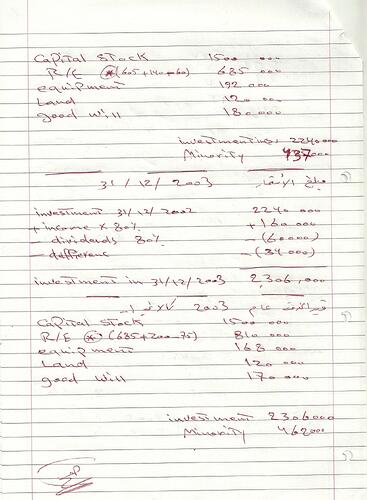 Capital Stock 1500 000
R/E * (605+140-60) 685 000
equipment 192 000
Land 120 000
good will 180 000
investment in S. 2240 000
Minority 437 000
31/12/2003
investment 31/12/2002 2240 000
+ income X 80% +160 000
- dividends 80% - (60000)
- defference - (34 000)
investment in 31/12/2003 2,306,000
2003
Capital stock 1500 000
R/E * (685+200-75) 810 000
equipment 168 000
Land 120 000
good will 170 000
investment 2306000
Minority 462000